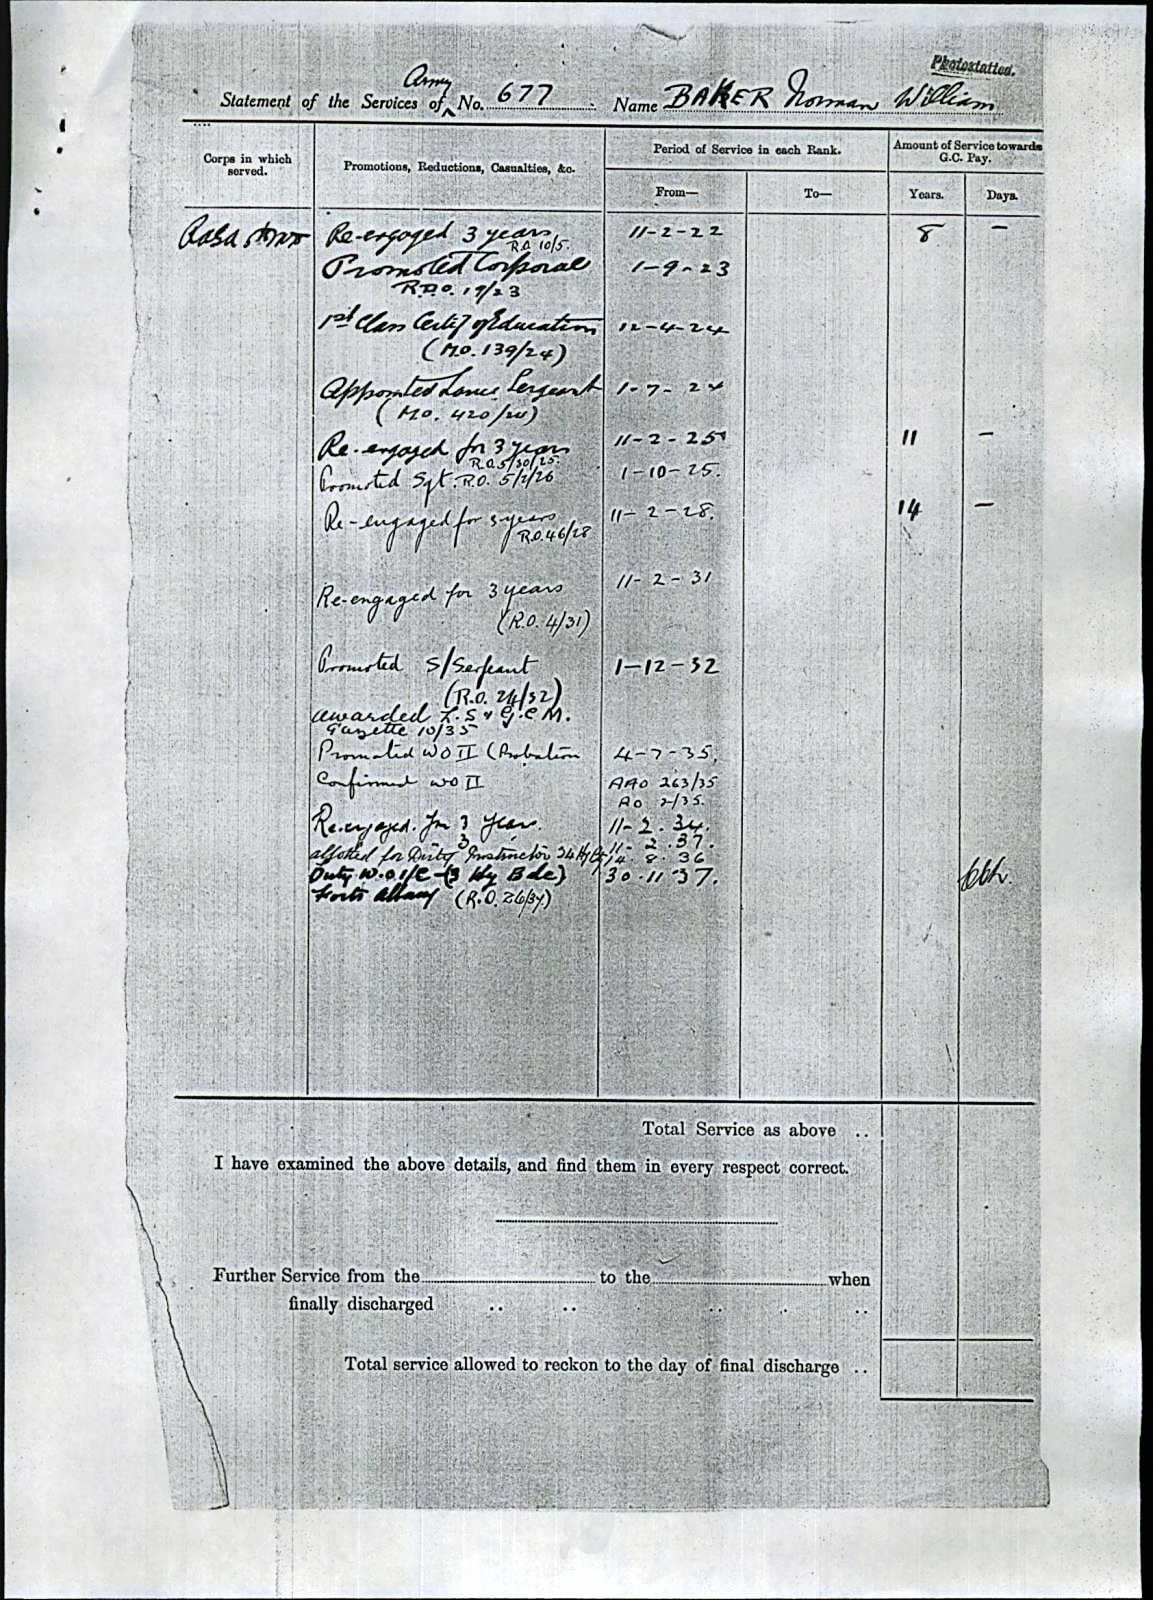 Photostatted.
Army
Statement of the Services of No. 677 Name BAKER Norman William
Corps in which served.
Promotions, Reductions, Casualties, &c.
Period of Service in each Rank.
From—
To—
Amount of Service towards G.C. Pay.
Years.
Days.
Re-engaged 3 years 11-2-22 8 —
R.O. 10/5
Promoted Corporal 1-9-23
R.O. 19/23
1st Class Certif of Education 12-4-24
(M.O. 139/24)
Appointed Lance Sergeant 1-7-24
(M.O. 420/24)
Re-engaged for 3 years 11-2-25 11 —
R.O. 5/30/25.
Promoted Sgt. R.O. 5/2/26 1-10-25.
Re-engaged for 3 years 11-2-28. 14 —
R.O. 46/28
Re-engaged for 3 years 11-2-31
(R.O. 4/31)
Promoted S/Sergeant 1-12-32
(R.O. 24/32)
awarded L.S & G.C.M.
Gazette 10/35
Promoted WO II (Probation 4-7-35.
Confirmed WO II AAO 263/35
AO 2/35.
Re-engaged. for 3 years. 11-2.34.
3 11-2.37.
allotted for Duty Instructor 14.8.36
Duty W.O. I/C (3 Hy Bde) 30.11.37.
Forts Albany (R.O. 26/37)
Total Service as above ..
I have examined the above details, and find them in every respect correct.
Further Service from the to the when
finally discharged .. .. .. .. ..
Total service allowed to reckon to the day of final discharge ..